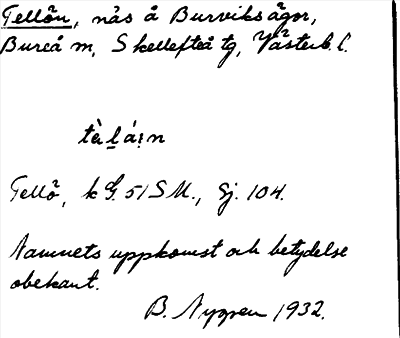 Tellön, näs å Burviks ägor,
Bureå sn, Skellefteå tg, Västerb. l.
Tellö, k G. 51 SM., Gj. 104.
Namnets uppkomst och betydelse
obekant.
B. Nygren 1932.